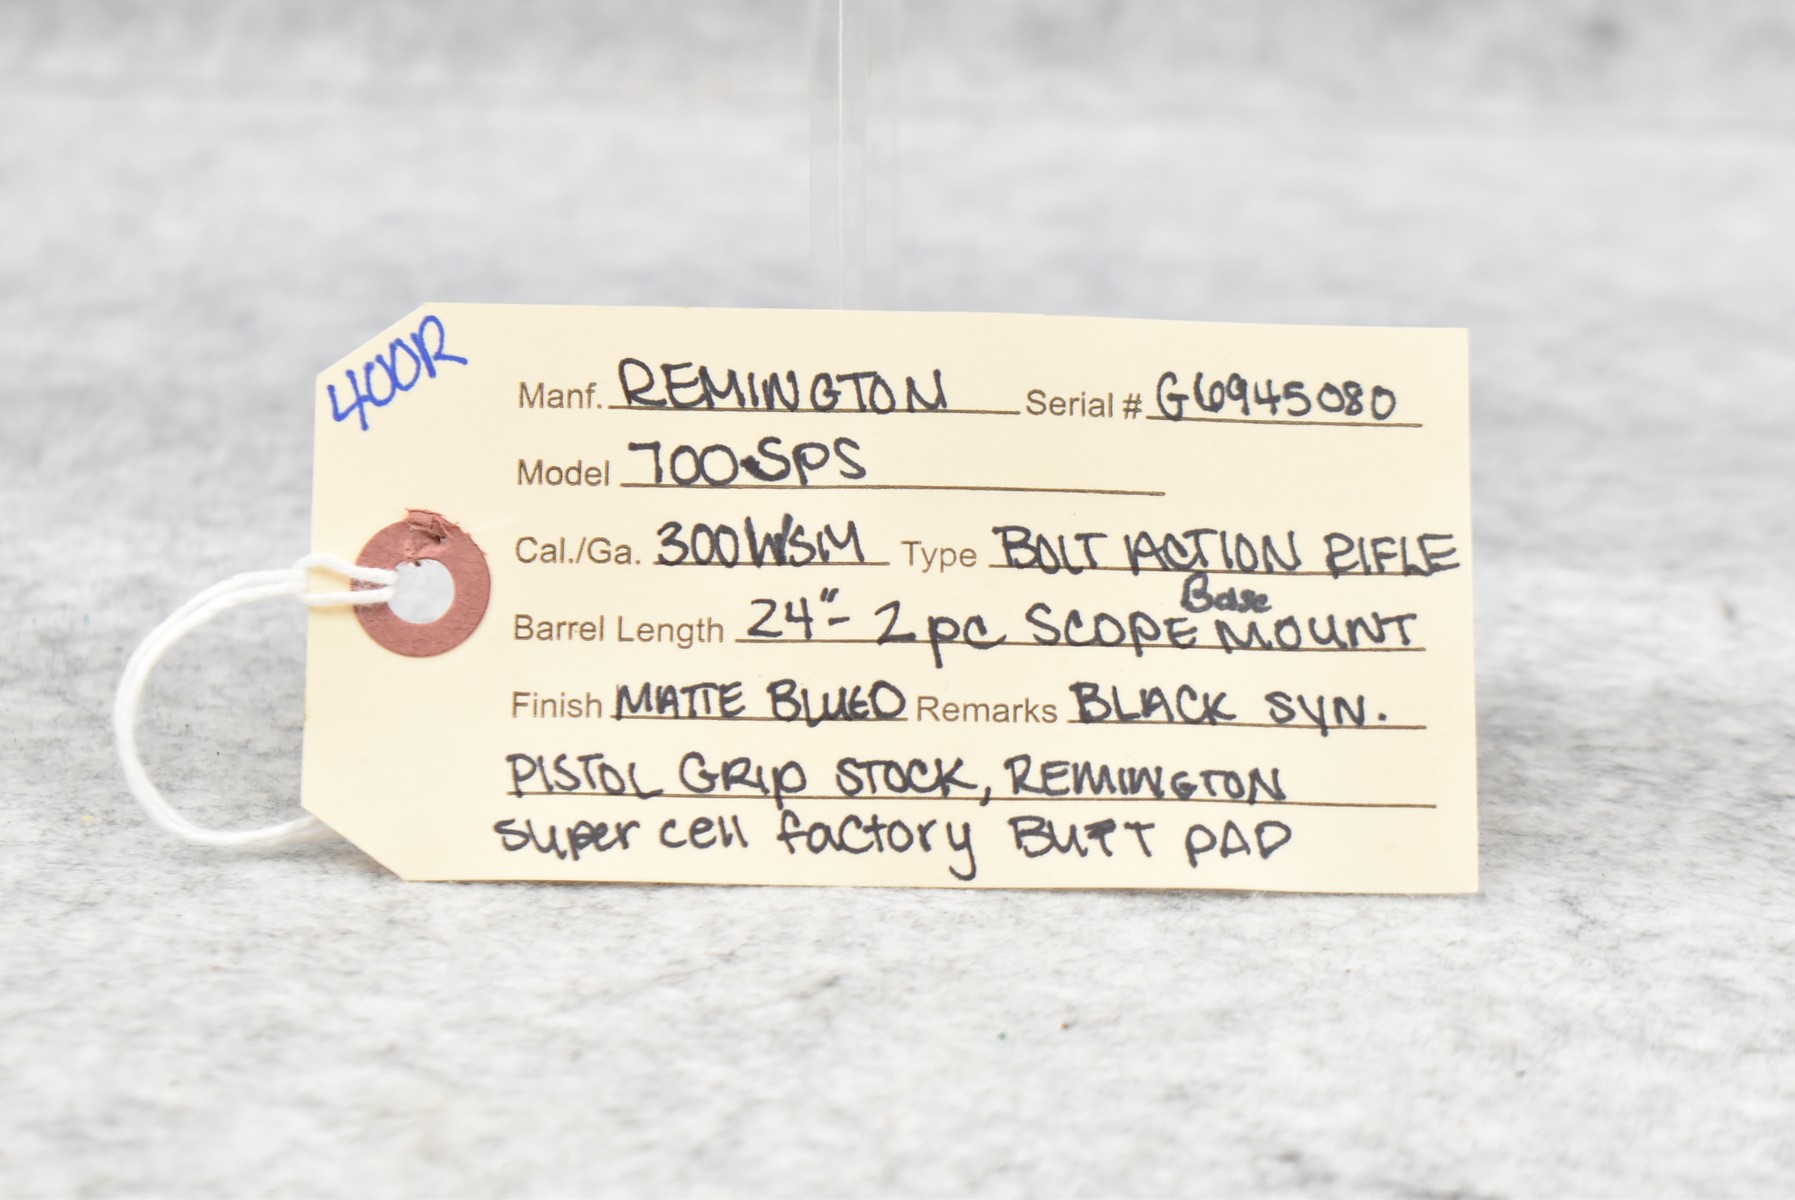 400R
Manf. REMINGTON Serial # G6945080
Model 700 SPS
Cal./Ga. 300 WSM Type BOLT ACTION RIFLE
Barrel Length 24" - 2 pc SCOPE Base MOUNT
Finish MATTE BLUED Remarks BLACK SYN.
PISTOL GRIP STOCK, REMINGTON
super cell factory BUTT PAD